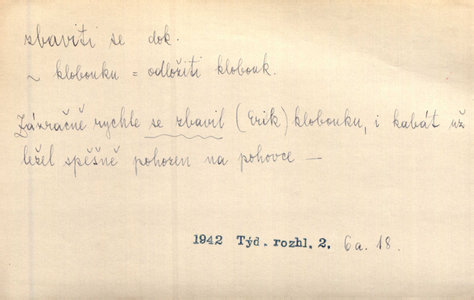 zbaviti se dok.
~ klobouku = odložiti klobouk.
Zázračně rychle se zbavil (Erik) klobouku, i kabát už
ležel spěšně pohozen na pohovce —
1942 Týd. rozhl. 2. 6a. 18.